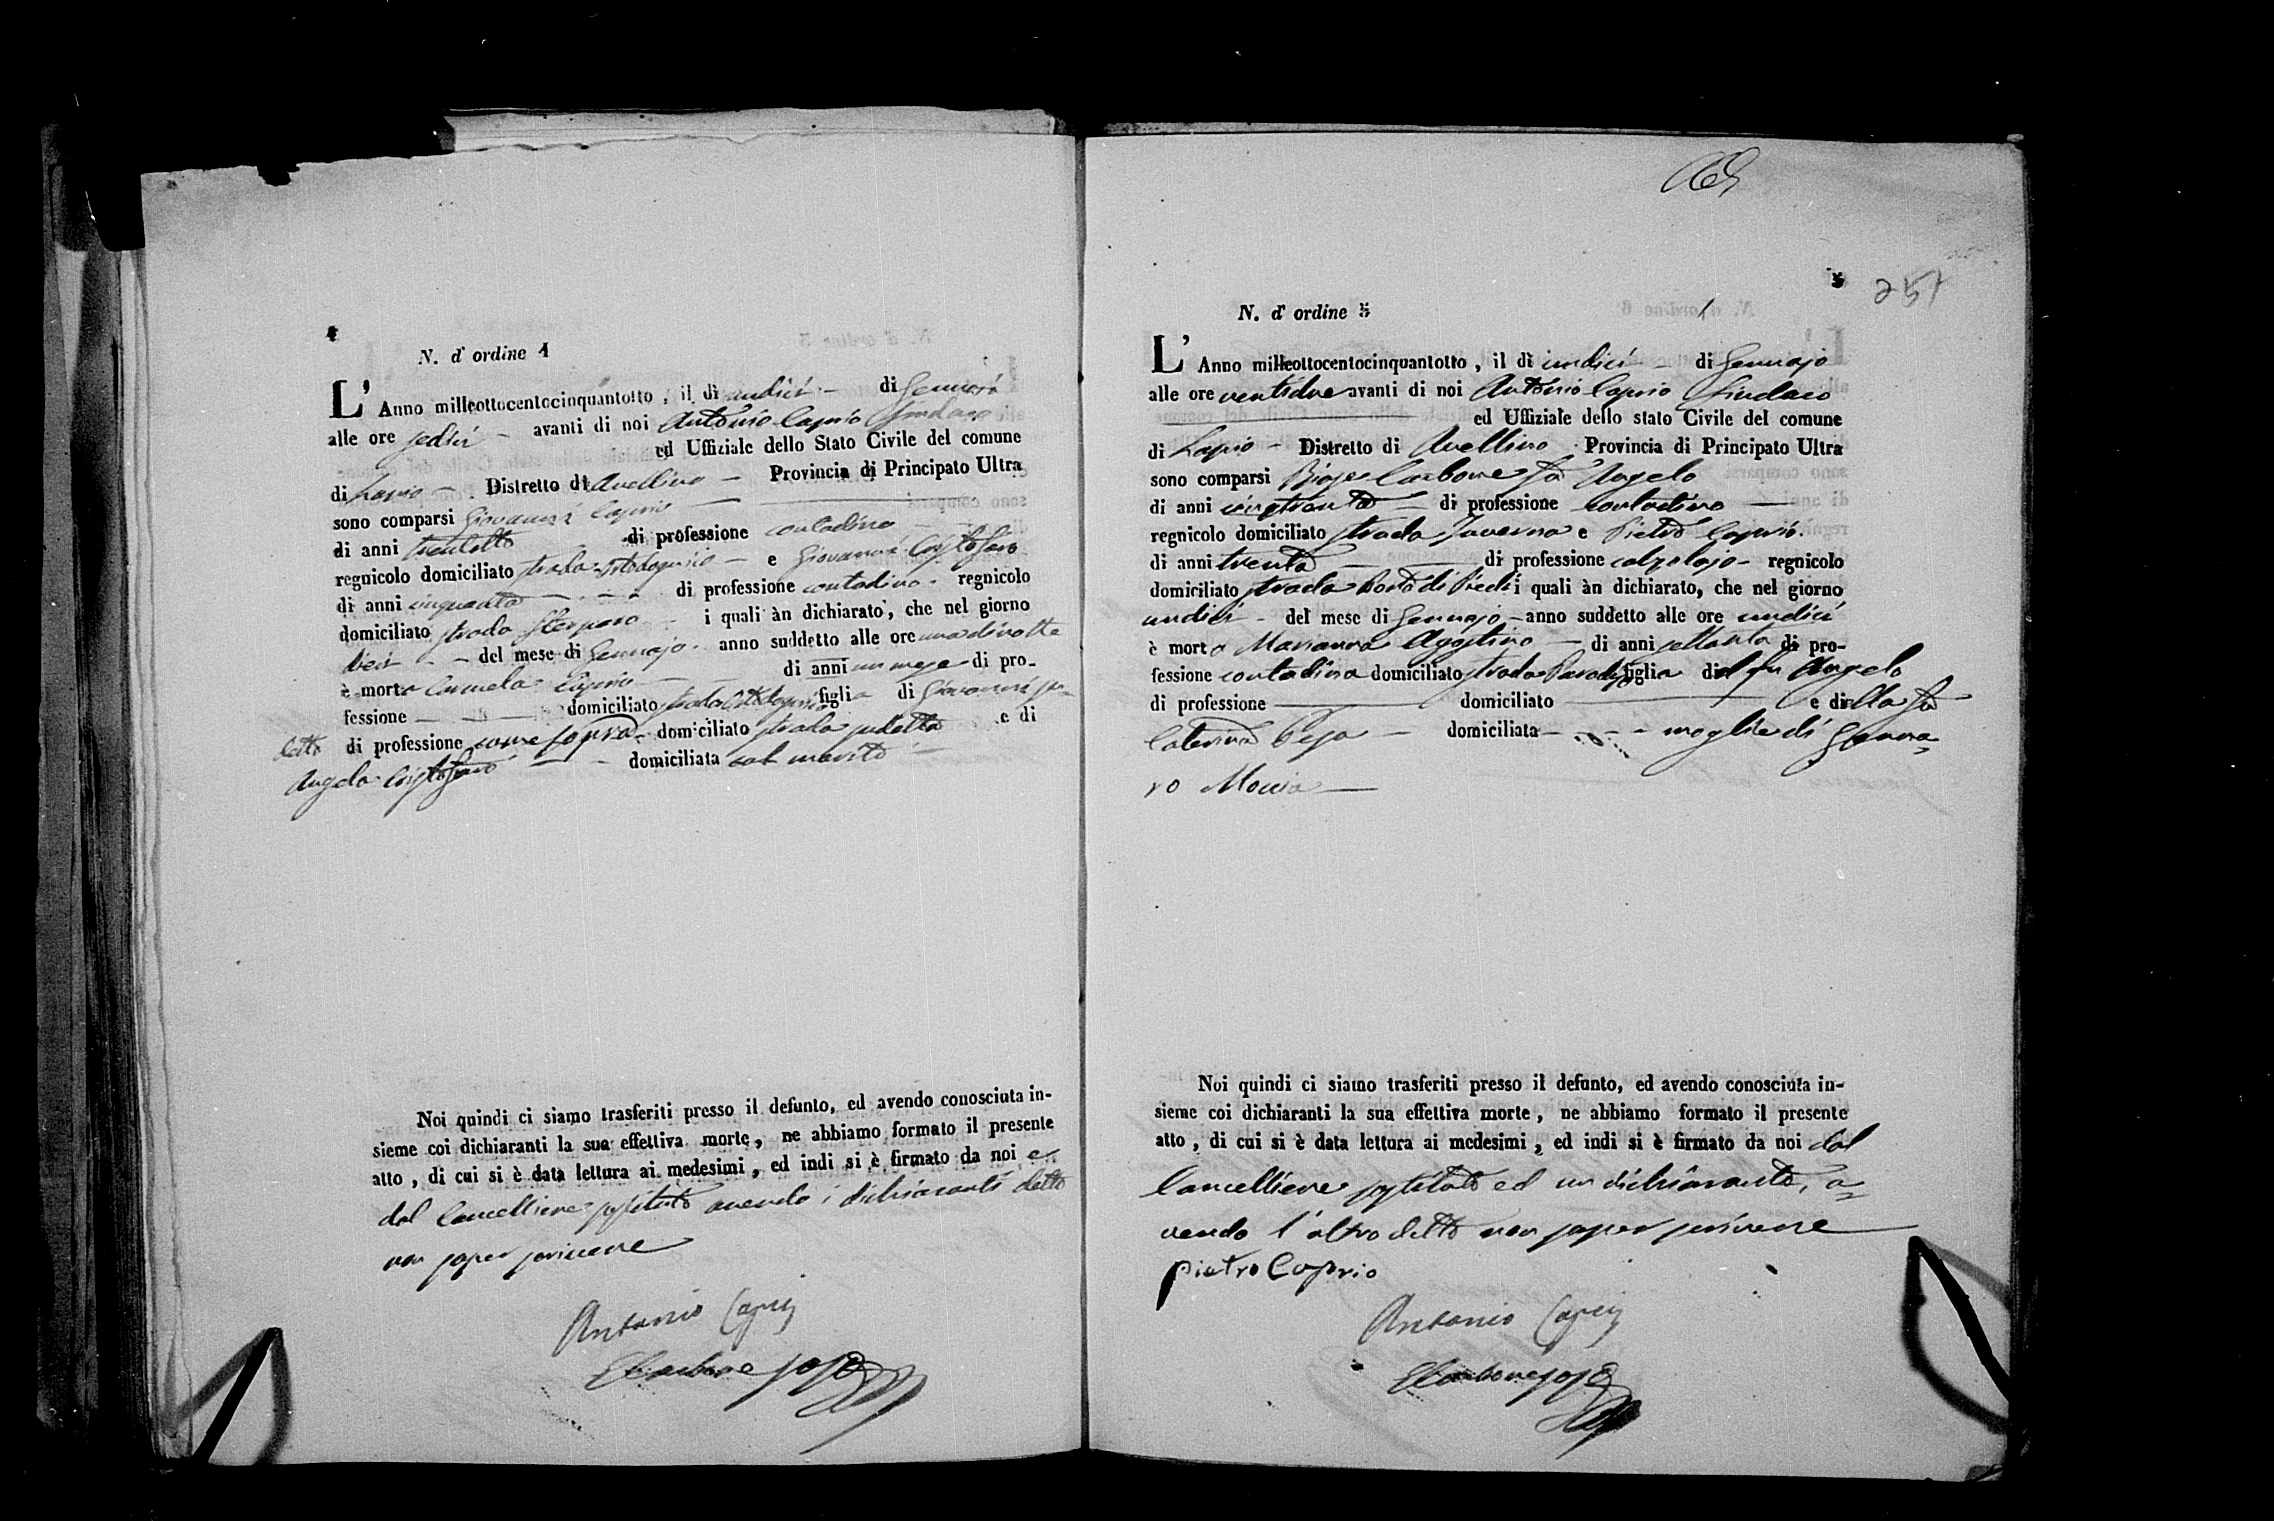 4
N. d' ordine 4
L' Anno milleottocentocinquantotto, il dì undici di Gennajo
alle ore sedici avanti di noi Antonio Caprio Sindaco
ed Uffiziale dello Stato Civile del comune
di Lapio Distretto di Avellino Provincia di Principato Ultra
sono comparsi Giovanni Caprio
di anni trentotto di professione contadino
regnicolo domiciliato strada e Giovanni Cristofaro
di anni cinquanta di professione contadino regnicolo
domiciliato strada i quali àn dichiarato, che nel giorno
dieci del mese di Gennajo anno suddetto alle ore una di notte
è morta Carmela Caprio di anni un mese di pro-
fessione domiciliato strada figlia di Giovanni su-
detto di professione come sopra domiciliato strada sudetta e di
Angela Cristofaro domiciliata col marito
Noi quindi ci siamo trasferiti presso il defunto, ed avendo conosciuta in-
sieme coi dichiaranti la sua effettiva morte, ne abbiamo formato il presente
atto, di cui si è data lettura ai medesimi, ed indi si è firmato da noi e
dal Cancelliere sostituto avendo i dichiaranti detto
non saper scrivere
Antonio Caprio
Carbone
5
251
N. d' ordine 5
L' Anno milleottocentocinquantotto, il dì undici di Gennajo
alle ore ventidue avanti di noi Antonio Caprio Sindaco
ed Uffiziale dello stato Civile del comune
di Lapio Distretto di Avellino Provincia di Principato Ultra
sono comparsi Biase Carbone fu Angelo
di anni di professione contadino
regnicolo domiciliato strada Taverna e Pietro Caprio
di anni trenta di professione calzolajo regnicolo
domiciliato strada i quali àn dichiarato, che nel giorno
undici del mese di Gennajo anno suddetto alle ore undici
è morta Marianna Agostino di anni settanta di pro-
fessione contadina domiciliato strada figlia del fu Angelo
di professione domiciliato e di della fu
Caterina domiciliata moglie di Genna=
ro Moccia
Noi quindi ci siamo trasferiti presso il defunto, ed avendo conosciuta in-
sieme coi dichiaranti la sua effettiva morte, ne abbiamo formato il presente
atto, di cui si è data lettura ai medesimi, ed indi si è firmato da noi dal
Cancelliere sostituto ed un dichiarante, a=
vendo l'altro detto non saper scrivere
Pietro Caprio
Antonio Caprio
Carbone